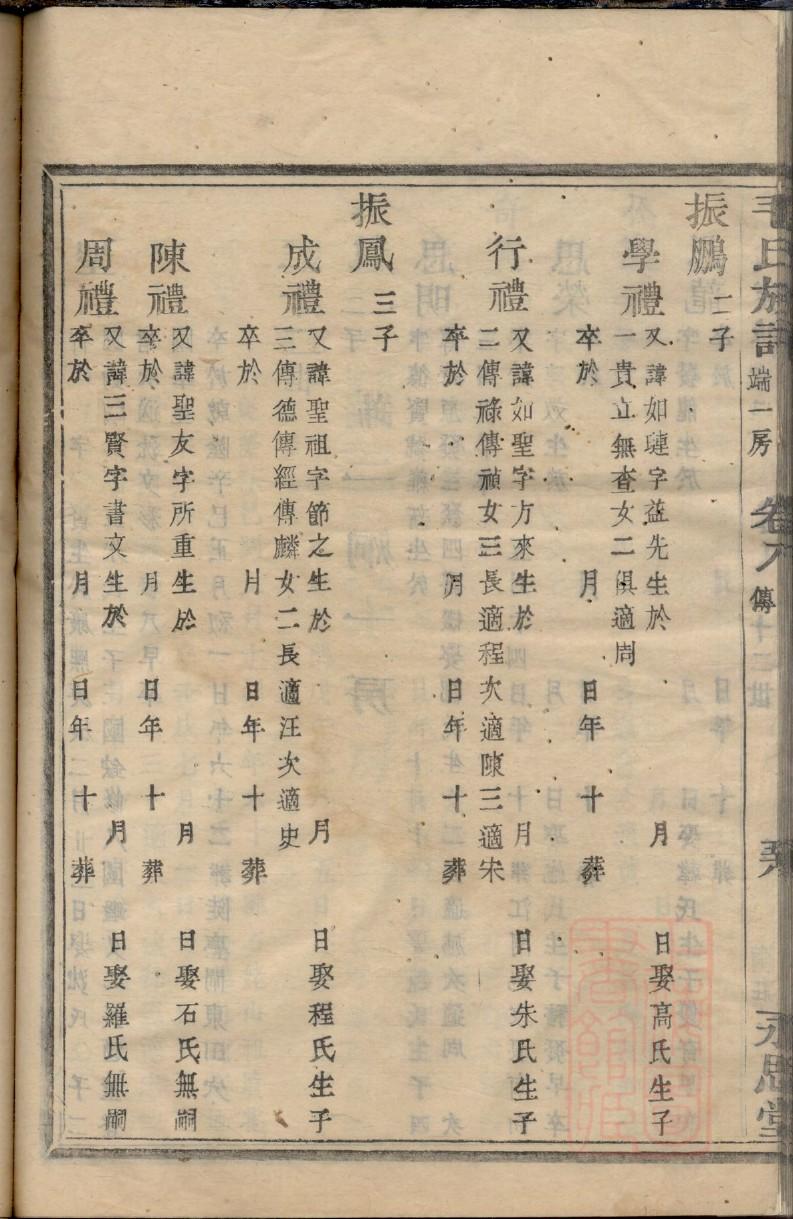 毛氏族譜 端一房 卷八 傳 永思堂
振鵬 二子
學禮 又諱如璉字益先生於 月 日娶高氏生子
一貴立無查女二俱適周
卒於 月 日年 十 葬
行禮 又諱如聖字方來生於 月 日娶朱氏生子
二傳祿傳禎女三長適程次適陳三適宋
卒於 月 日年 十 葬
振鳳 三子
成禮 又諱聖祖字節之生於 月 日娶程氏生子
三傳德傳經傳麟女二長適汪次適史
卒於 月 日年 十 葬
陳禮 又諱聖友字所重生於 月 日娶石氏無嗣
卒於 月 日年 十 葬
周禮 又諱三賢字書文生於 月 日娶羅氏無嗣
卒於 月 日年 十 葬